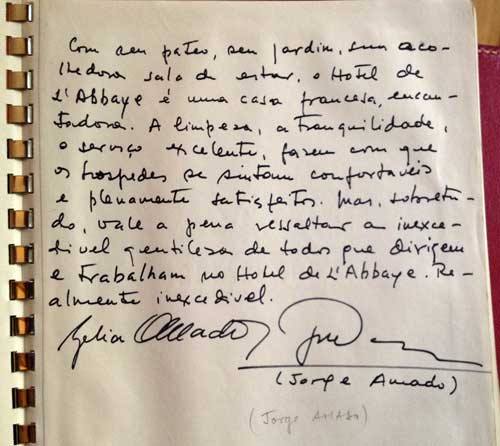 Com seu pateo, seu jardim, sua aco-
lhedora sala de estar, o Hotel de
L'Abbaye é uma casa francesa, encan-
tadora. A limpeza, a tranquilidade,
o serviço excelente, fazem com que
os hospedes se sintam confortáveis
e plenamente satisfeitos. Mas, sobretu-
do, vale a pena ressaltar a inexce-
divel gentileza de todos que dirigem
e trabalham no Hotel de L'Abbaye. Re-
almente inexcedivel.
Zelia Amado
(Jorge Amado)
(Jorge Amado)